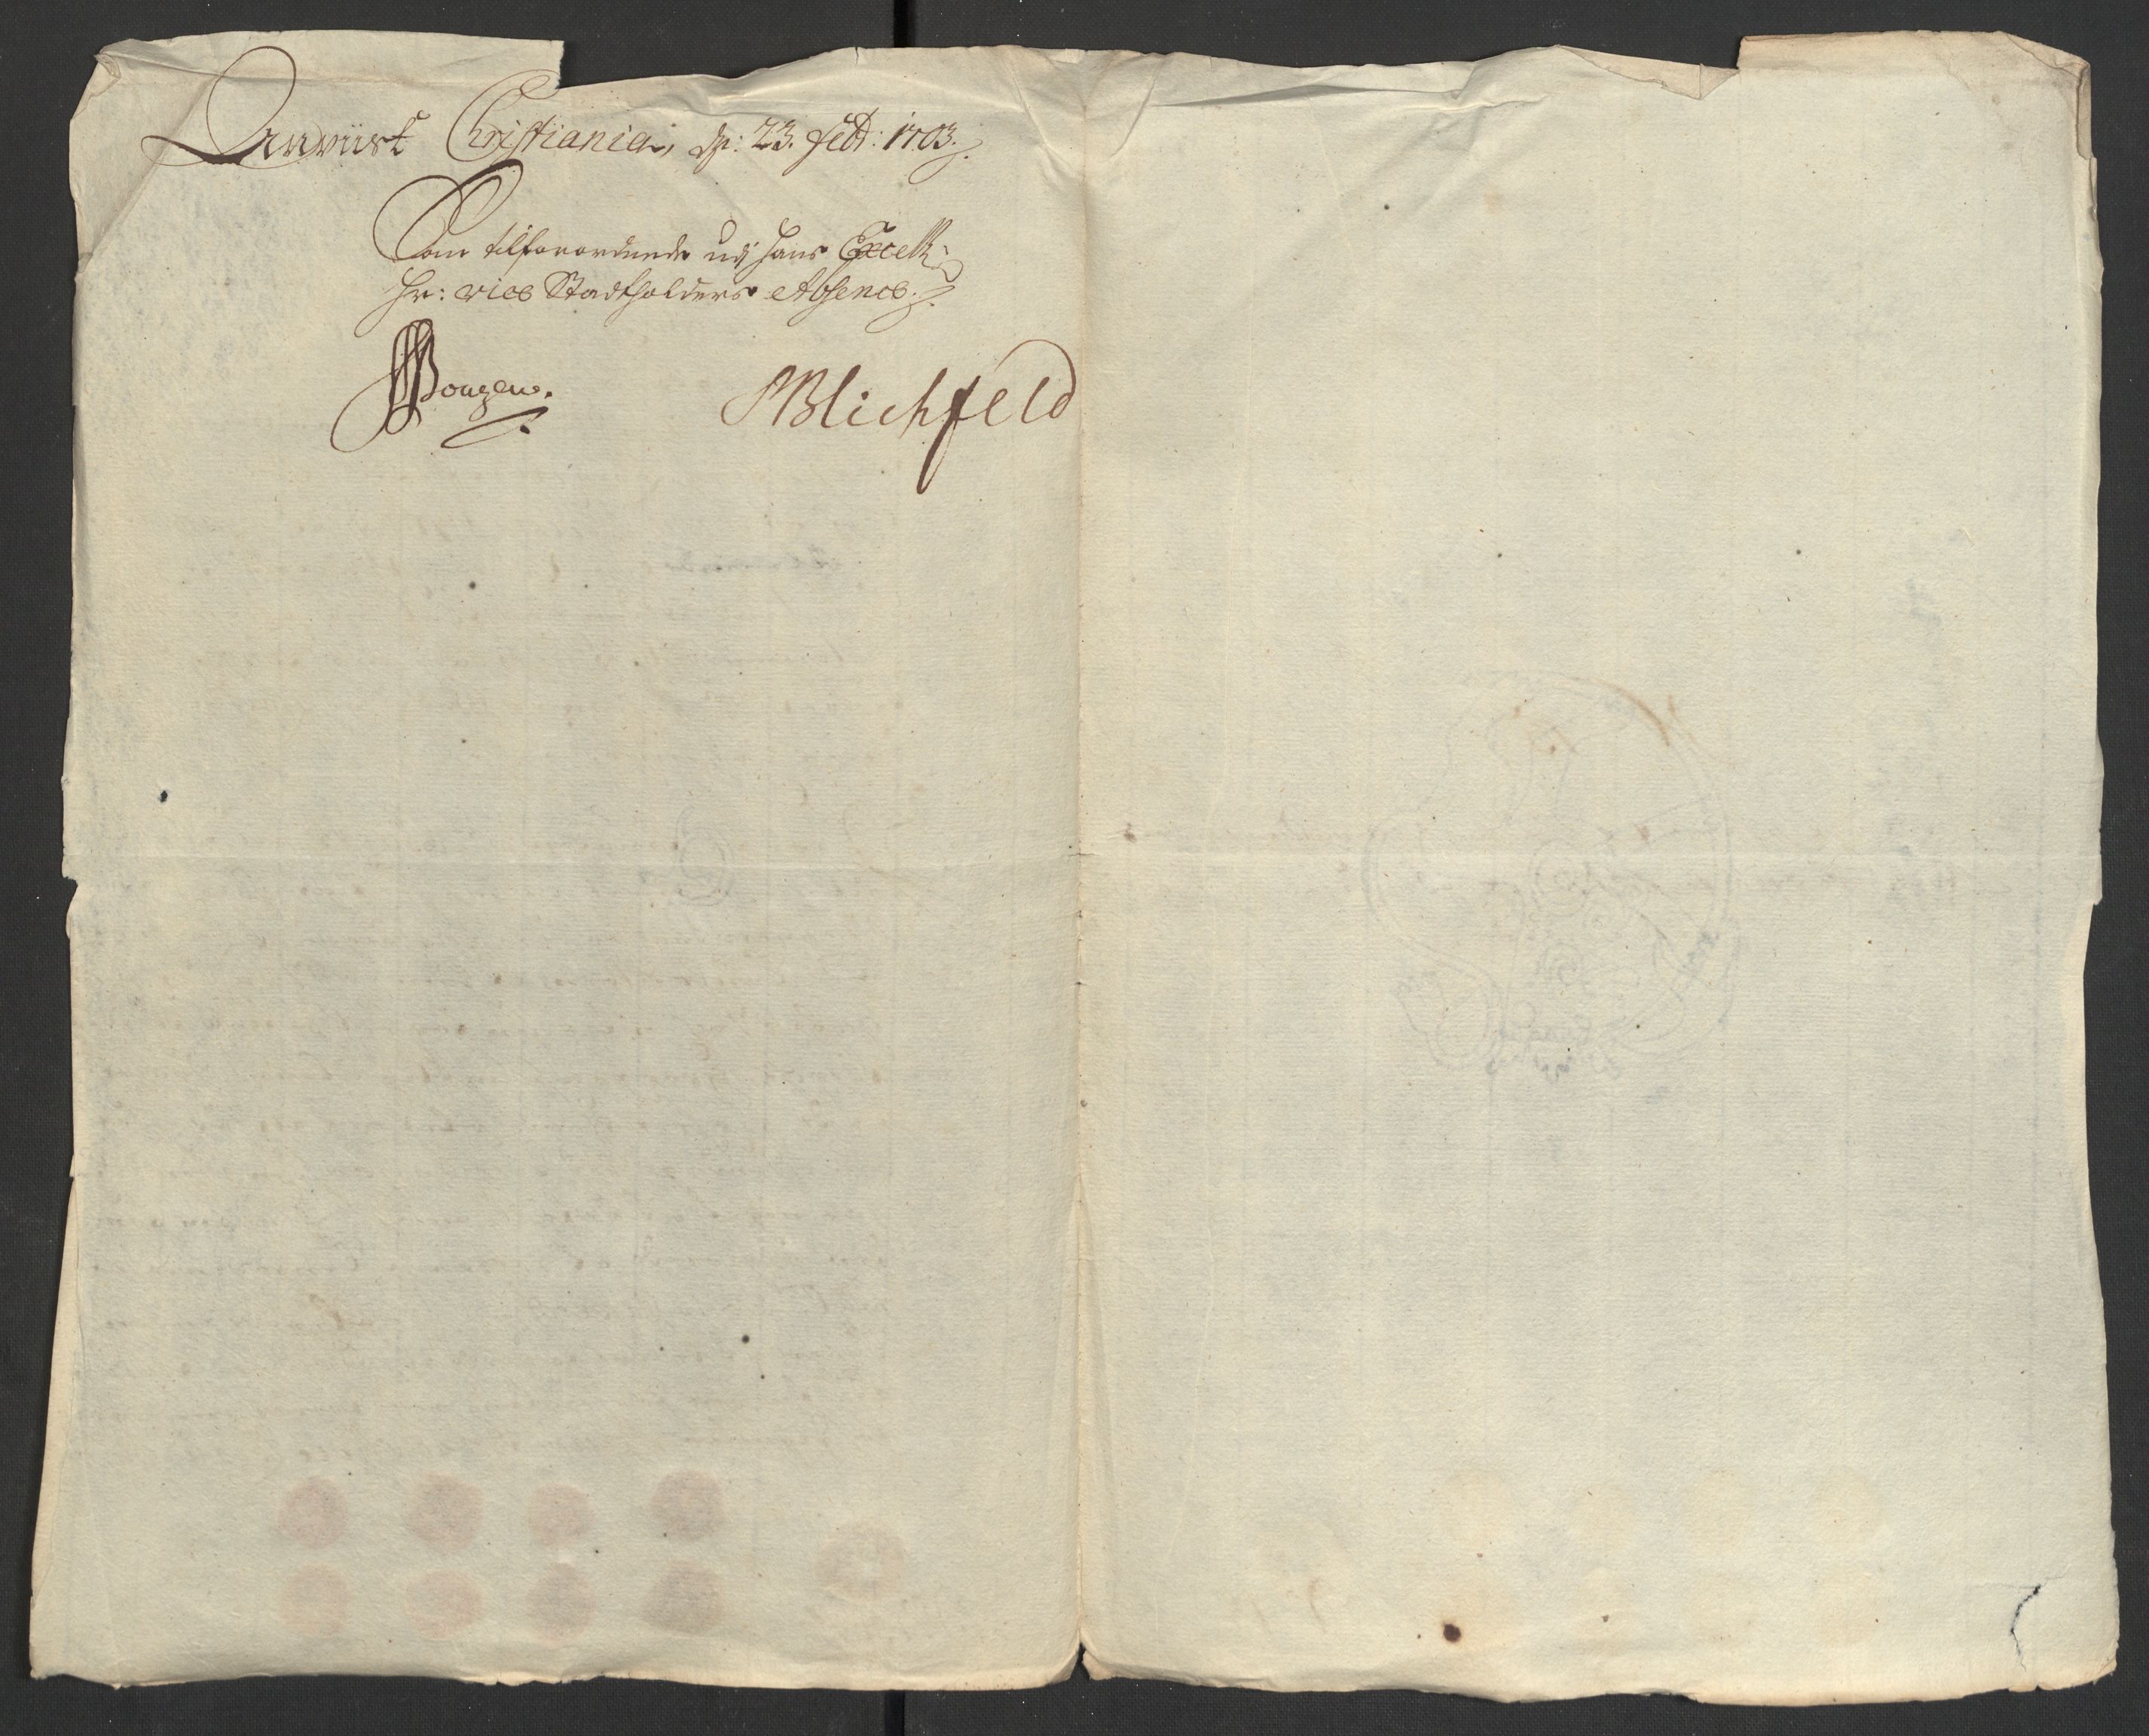 Anviist Christiania, dn: 23. febr: 1703.
Som tilforordnede udj hans Excell:
Hr: vice Stadtholders Absence.
Blichfeld